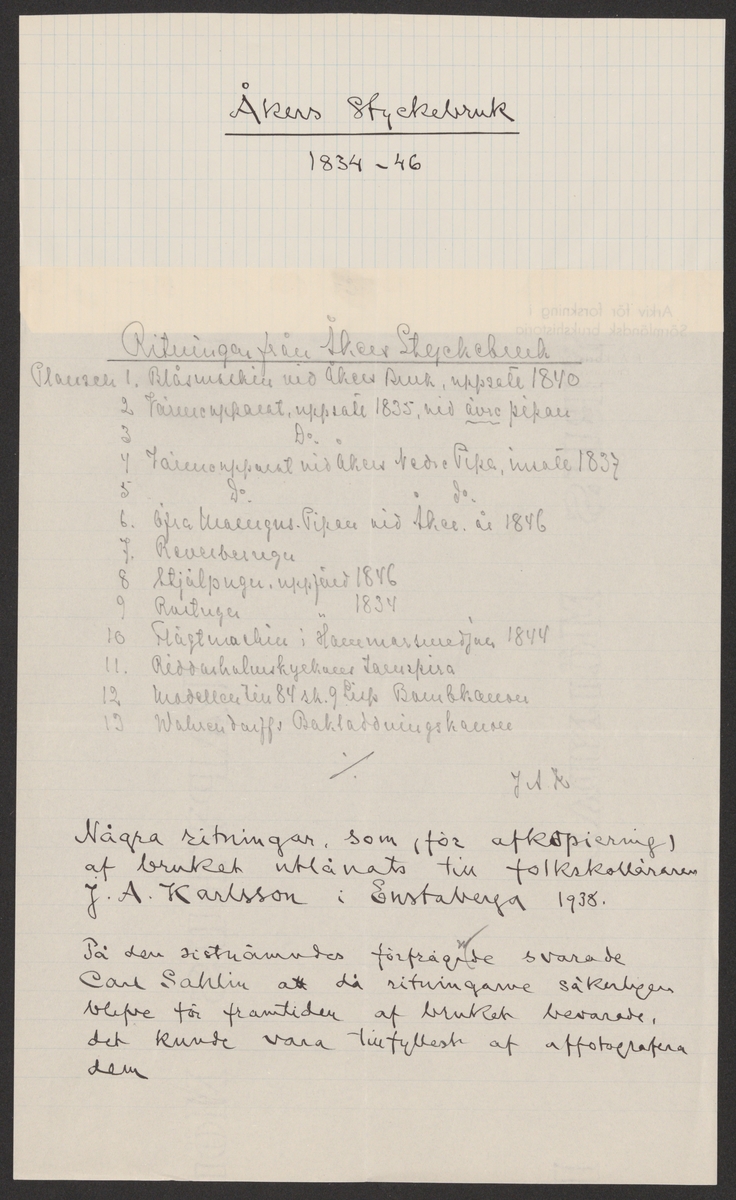 Åkers Styckebruk
1834-46
Arkiv för forskning i
Sörmländsk brukshistoria
Ritningar från Åkers Styckebruk
Planscen 1. Blåsmachin vid Åkers Bruk, uppsatt 1840
2 Värmeapparat, uppsatt 1835, vid övre pipan
3 Do.
4 Värmeapparat vid Åkers Nedre Pipa, insatt 1837
5 Do. do.
6. Öfra Masugns-Pipan vid Åker. år 1846
7. Reverberugn
8 Stjälpugn, uppförd 1846
9 Rostugn " 1834
10 Flägtmachin i Hammarsmedjan 1844
11. Riddarholmskyrkans Tornspira
12 Modell till 84 sk. Bombkanon
13 Wahrendorffs Bakladdningskanon
./.
J A K
Några ritningar, som (för afkopiering)
af bruket utlånats till folkskolläraren
J. A. Karlsson i Enstaberga 1938.
På den sistnämndes förfrågande svarade
Carl Sahlin att då ritningarne säkerligen
blefve för framtiden af bruket bevarade,
det kunde vara tillfyllest af affotografera
dem